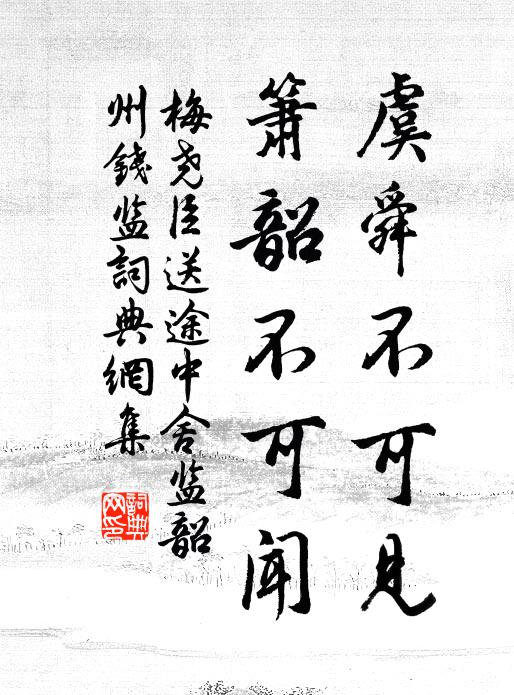 虞舜不可見
箫韶不可闻
梅尧臣送途中舍监韶
州錢监詞典網集
詞典
网印